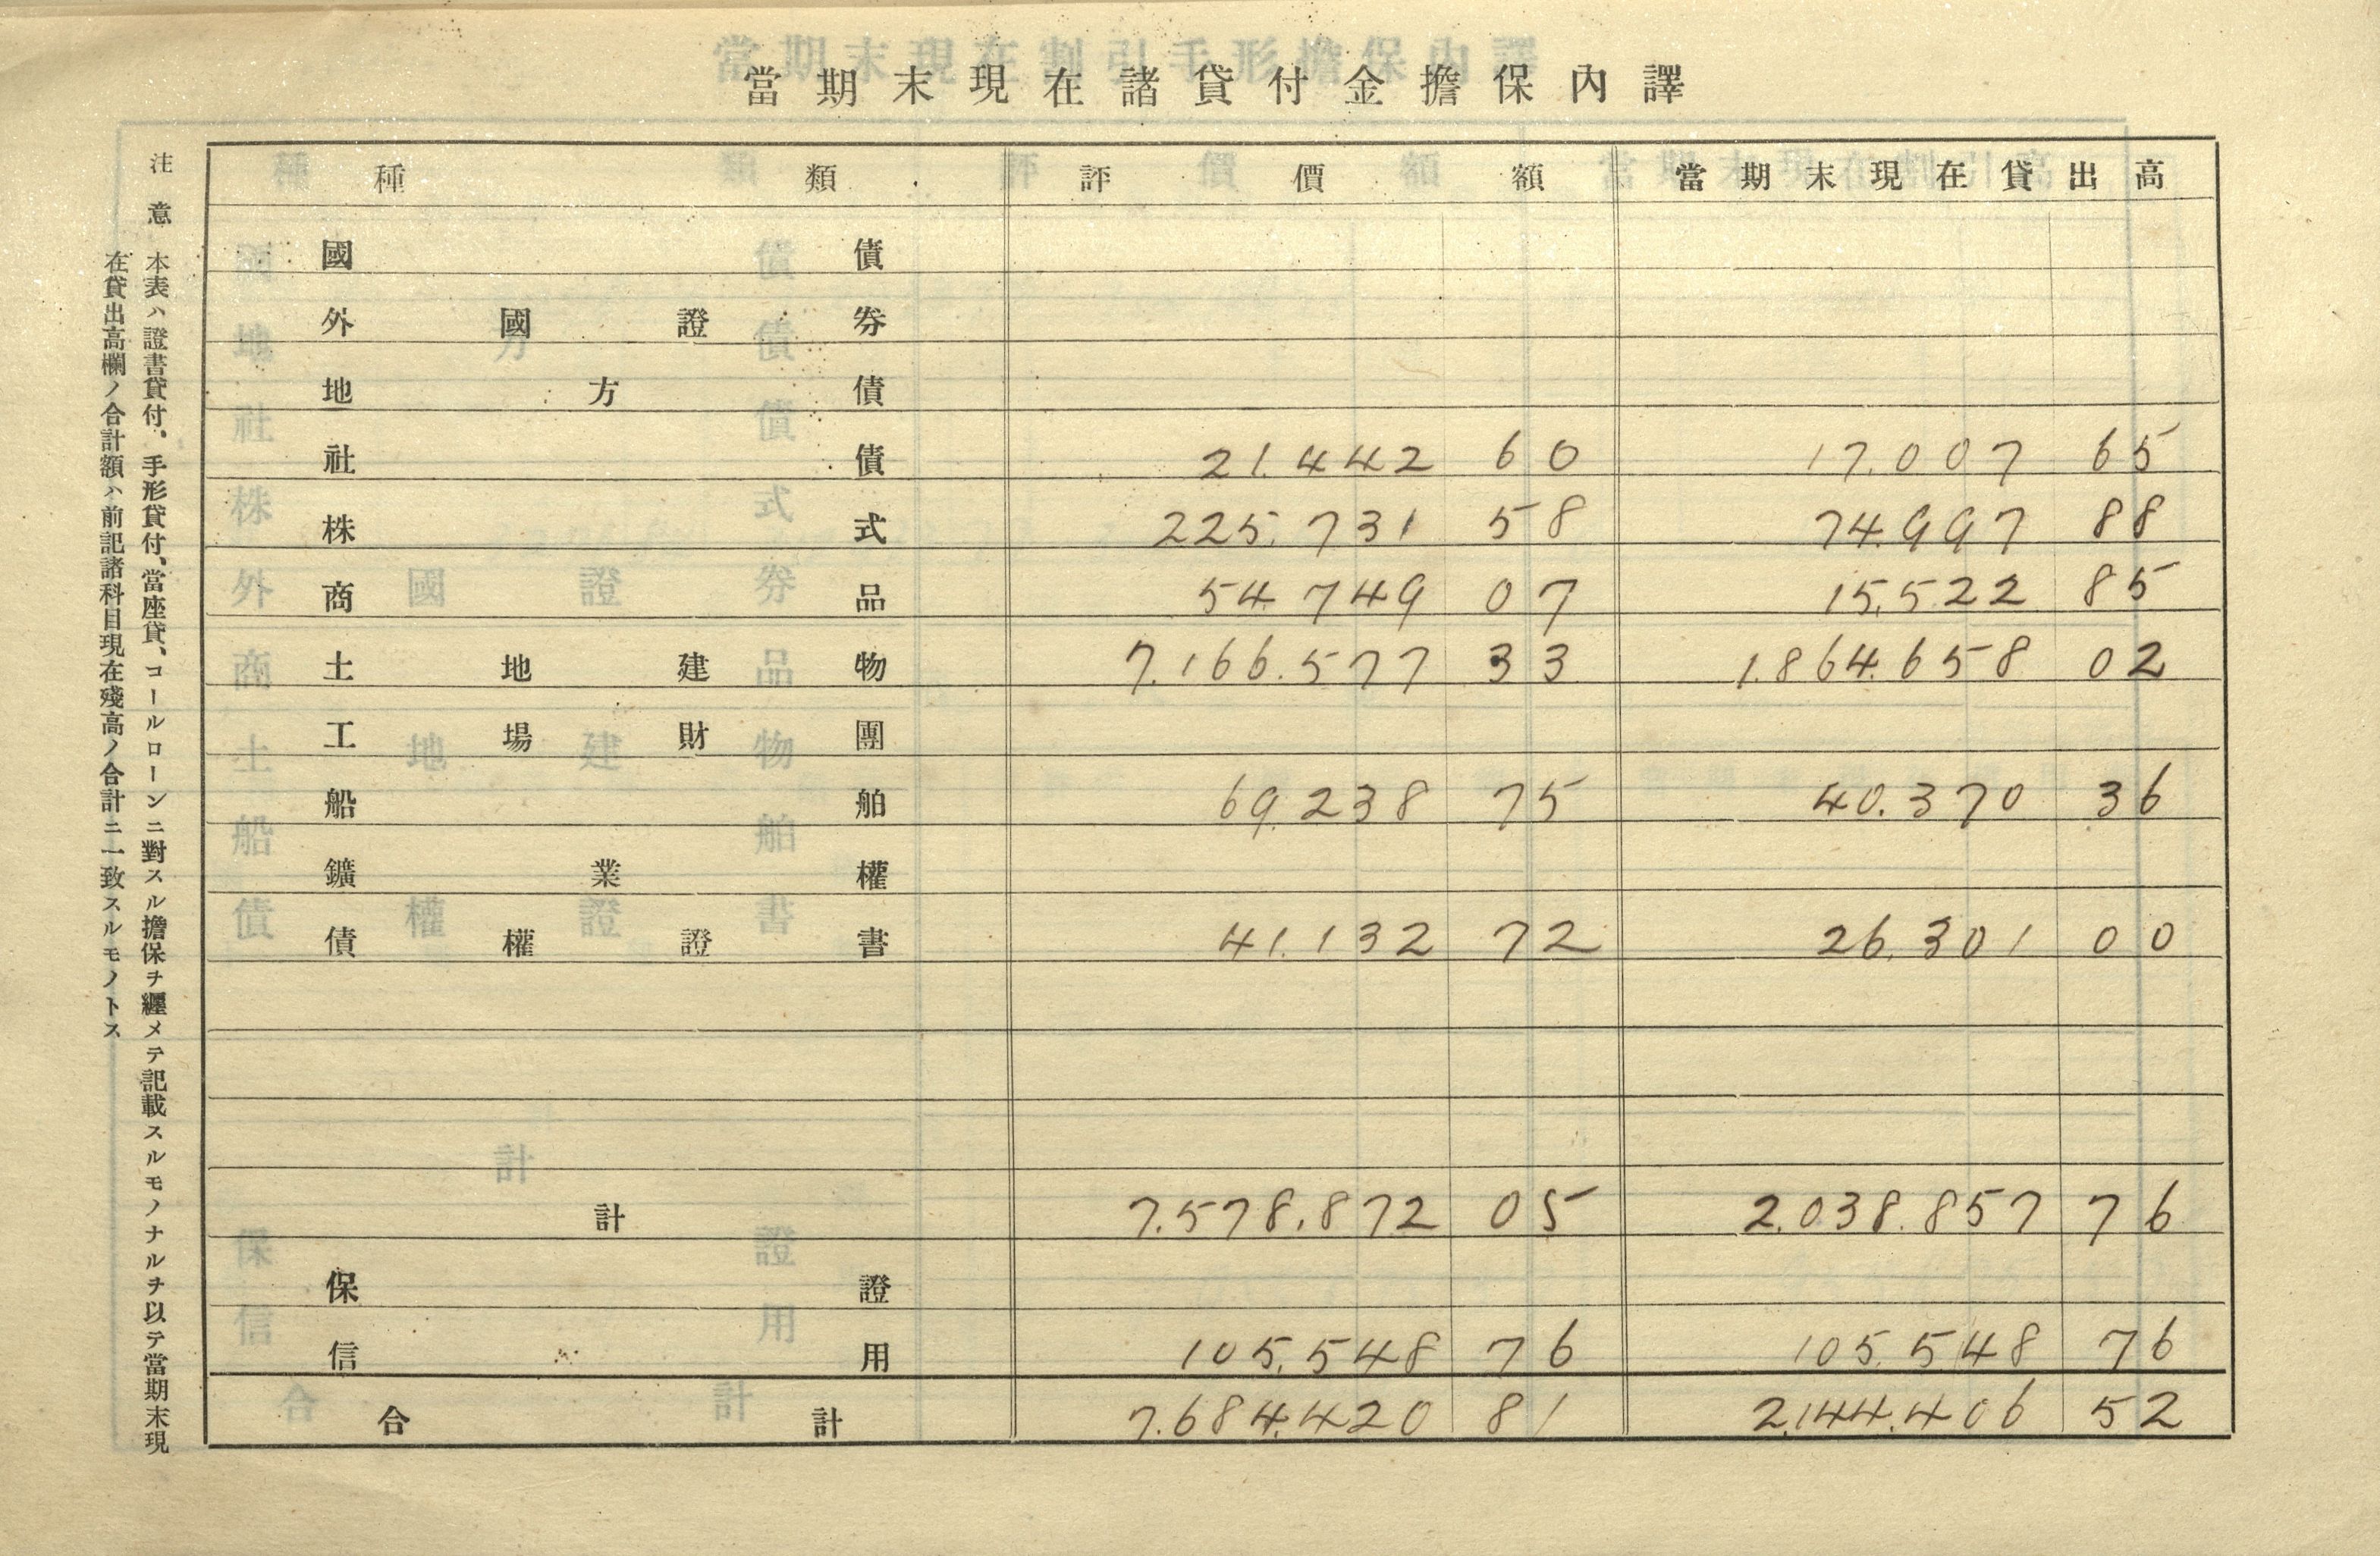 當期末現在諸貸付金擔保內譯
種類 評價額 當期末現在貸出高
國債
外國證券
地方債
社債 21.442 60 17.007 65
株式 225.731 58 74.997 88
商品 54.749 07 15.522 85
土地建物 7.166.577 33 1.864.658 02
工場財團
船舶 69.238 75 40.370 36
鑛業權
債權證書 41.132 72 26.301 00
計 7.578.872 05 2.038.857 76
保證
信用 105.548 76 105.548 76
合計 7.684.420 81 2.144.406 52
注意 本表ハ證書貸付、手形貸付、當座貸、コールローンニ對スル擔保ヲ纒メテ記載スルモノナルヲ以テ當期末現
在貸出高欄ノ合計額ハ前記諸科目現在殘高ノ合計ニ一致スルモノトス